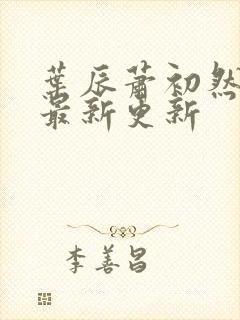 葉辰蕭初然
最新更新
李善昌